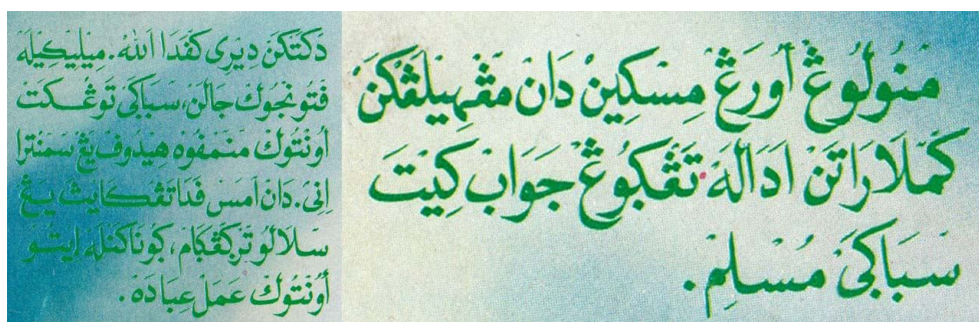 مَنُولُوڠْ أَورَڠْ مِسْكِينْ دَانْ مڠْهِيلَڠْكَنْ
كَمْلَارَاتَنْ اَدَالَهْ تَڠْكُوڠْ جَوَابْ كِيتَ
سَبَاكَيْ مُسْلِمْ.
دَكَتكَنْ دِيرِى كَفَدَا اَللهْ. مِيْلِيكِيلَهْ
فَتُونْجُوكْ جَالَنْ، سَبَاكَيْ توڠْكَتْ
اُونْتُوكْ مَنَمْفُوهْ هِيْدُوفْ يڠْ سَمَنْتَرا
اِنِى. دَانْ اَمَسْ فَدَا تَڠْكَايثْ يَڠْ
سَلَالُو تَرْكَڠْكَامْ، كُونَاكَنْلَهْ اِيتُو
اُونْتُوكْ عَمَلْ عِبَادَهْ.